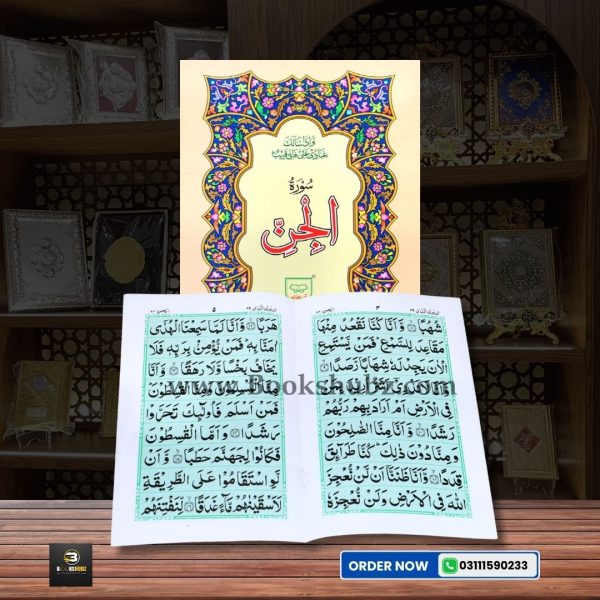 وَاِذَا سَاَلَكَ
عِبَادِیْ عَنِّیْ فَاِنِّیْ قَرِیْبٌ
سُوْرَةُ
الْجِنِّ
شُهُبًا وَّاَنَّا كُنَّا نَقْعُدُ مِنْهَا
مَقَاعِدَ لِلسَّمْعِ فَمَنْ يَّسْتَمِعِ
الْاٰنَ يَجِدْ لَهٗ شِهَابًا رَّصَدًا
فِي الْاَرْضِ اَمْ اَرَادَ بِهِمْ رَبُّهُمْ
رَشَدًا وَّاَنَّا مِنَّا الصّٰلِحُوْنَ
وَمِنَّا دُوْنَ ذٰلِكَ كُنَّا طَرَآئِقَ
قِدَدًا وَّاَنَّا ظَنَنَّا اَنْ لَّنْ نُّعْجِزَ
اللّٰهَ فِي الْاَرْضِ وَلَنْ نُّعْجِزَهٗ
هَرَبًا وَّاَنَّا لَمَّا سَمِعْنَا الْهُدٰى
اٰمَنَّا بِهٖ فَمَنْ يُّؤْمِنْ بِرَبِّهٖ فَلَا
يَخَافُ بَخْسًا وَّلَا رَهَقًا وَّاَنَّا
مِنَّا الْمُسْلِمُوْنَ وَمِنَّا الْقٰسِطُوْنَ
فَمَنْ اَسْلَمَ فَاُولٰٓئِكَ تَحَرَّوْا
رَشَدًا وَاَمَّا الْقٰسِطُوْنَ
فَكَانُوْا لِجَهَنَّمَ حَطَبًا وَّاَنْ
لَّوِ اسْتَقَامُوْا عَلَى الطَّرِيْقَةِ
لَاَسْقَيْنٰهُمْ مَّآءً غَدَقًا لِّنَفْتِنَهُمْ
www.Bookshubz.com
BOOKSHUBZ
ORDER NOW 03111590233